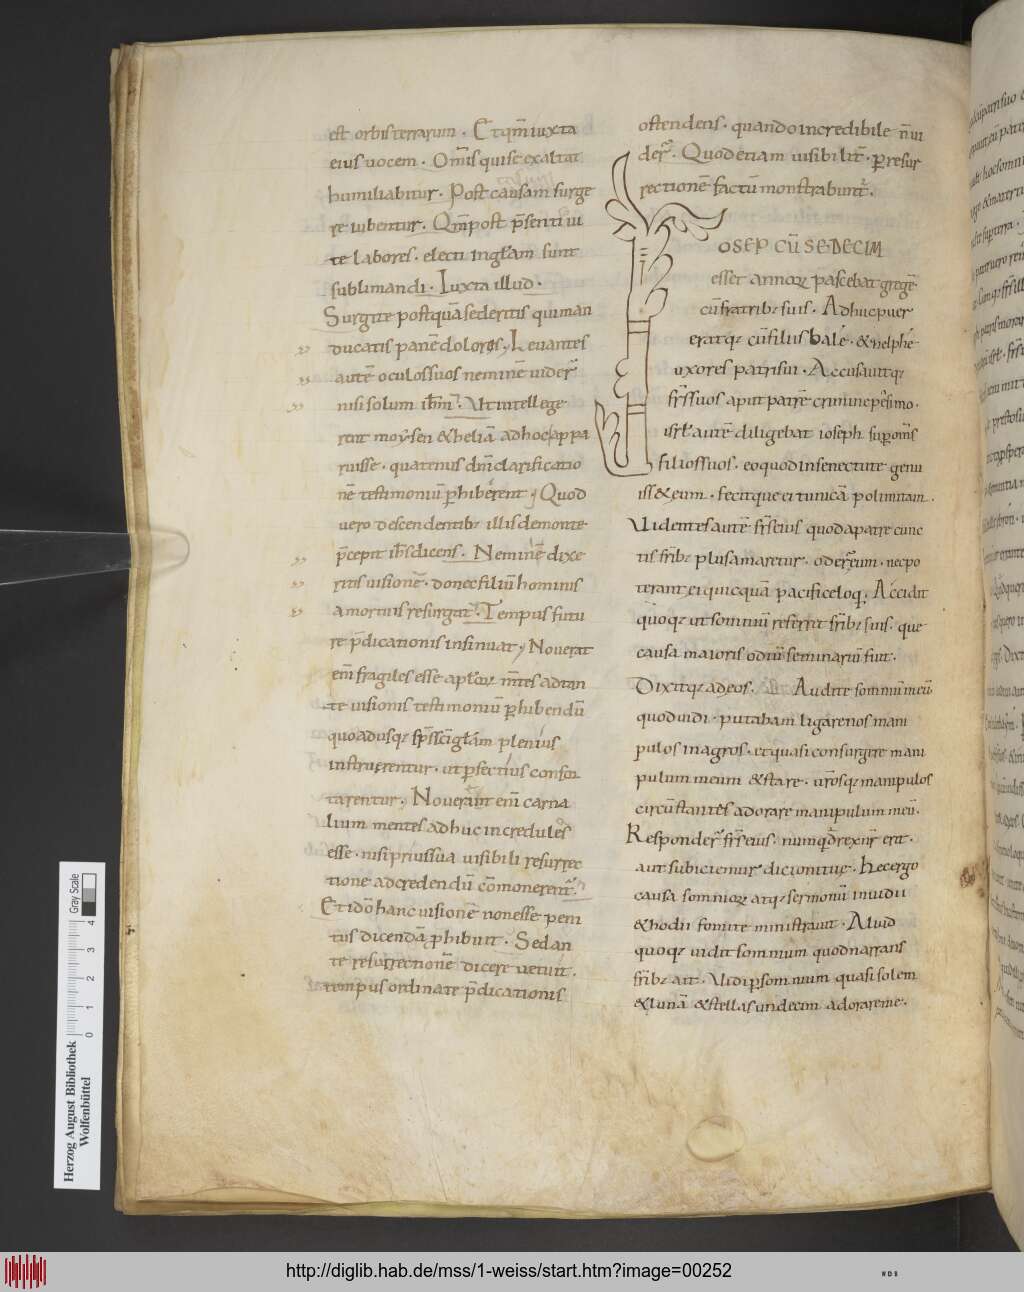 est orbis terrarum. Et qm̄ iuxta
eius uocem. Om̄is qui se exaltat
humiliabitur. Post causam surge
re iubentur. Qm̄ post p̄senti ui
te labores. electi in gła̅m sunt
sublimandi. Iuxta illud.
Surgite postquā sederitis qui man
ducatis panē doloris, Leuantes
autē oculos suos neminē uider̄
nisi solum ih̄m. Ut intellege
rent moysen & heliā ad hoc appa
ruisse. quatenus dn̄i clarificatio
nē testimoniū p̱hiberent, Quod
uero descendentibꝫ illis de monte
p̄cepit ih̄s dicens. Neminē dixe
ritis uisionē. donec filiū hominis
a mortuis resurgat. Tempus futu
re p̄dicationis insinuat, Nouerat
eni̅ fragiles esse apl̄oꝝ m̄tes ad tan
te uisionis testimoniū p̱hibendū
quo adusqꝫ sp̄s sc̄i gła̅m plenius
instruerentur. ut p̱fectius confor
tarentur, Nouerant eni̅ carna
lium mentes adhuc incredulos
esse. nisi prius sua uisibili resurrec
tione ad credendū cōmonerent̄.
Et idō hanc uisionē non esse peni
tus dicendā p̱hibuit. Sed an
te resurrectionē dicere uetuit.
tempus ordinate p̄dicationis
ostendens. quando incredibile n̄ ui
der̄. Quod etiam uisibilit̄. p̱ resur
rectionē factū monstrabunt̄.
IOSEP CŪ SEDECIM
esset annoꝝ pascebat gregē
cū fratribꝫ suis. Adhuc puer
eratqꝫ cū filiis bale. & zelphe
uxores patris sui. Accusauitqꝫ
fr̄s suos aput patrē crimine pessimo.
isrl̄ autē diligebat ioseph sup̱ om̄s
filios suos. eo quod in senectute genu
iss& eum. fecitque ei tunicā polimitam.
Uidentes autē fr̄s eius quod a patre cunc
tis fr̄ibꝫ plus amaretur. oder̄ eum. nec po
terant ei quicquā pacifice loq̱. Accidit
quoqꝫ ut somniū referret fr̄ibꝫ suis. que
causa maioris odiū seminariū fuit.
Dixitqꝫ ad eos. Audite somniū meū
quod uidi. putabam ligare nos mani
pulos in agros. et quasi consurgere mani
pulum meum & stare. ur̄osqꝫ manipulos
circū stantes adorare manipulum meū.
Responder̄ fr̄s eius. numqd̄ rex nr̄ erit.
aut subiciemur dicioni tuę. hec ergo
causa somnioꝝ atqꝫ sermonū inuidii
& hodii fomite ministrauit. Aliud
quoqꝫ uidit somnium quod narrans
fr̄ibꝫ ait. Uidi p̱ somnium quasi solem
& lunā & stellas undecim adorare me.
Herzog August Bibliothek
Wolfenbüttel
Gray Scale
0 1 2 3 4
http://diglib.hab.de/mss/1-weiss/start.htm?image=00252